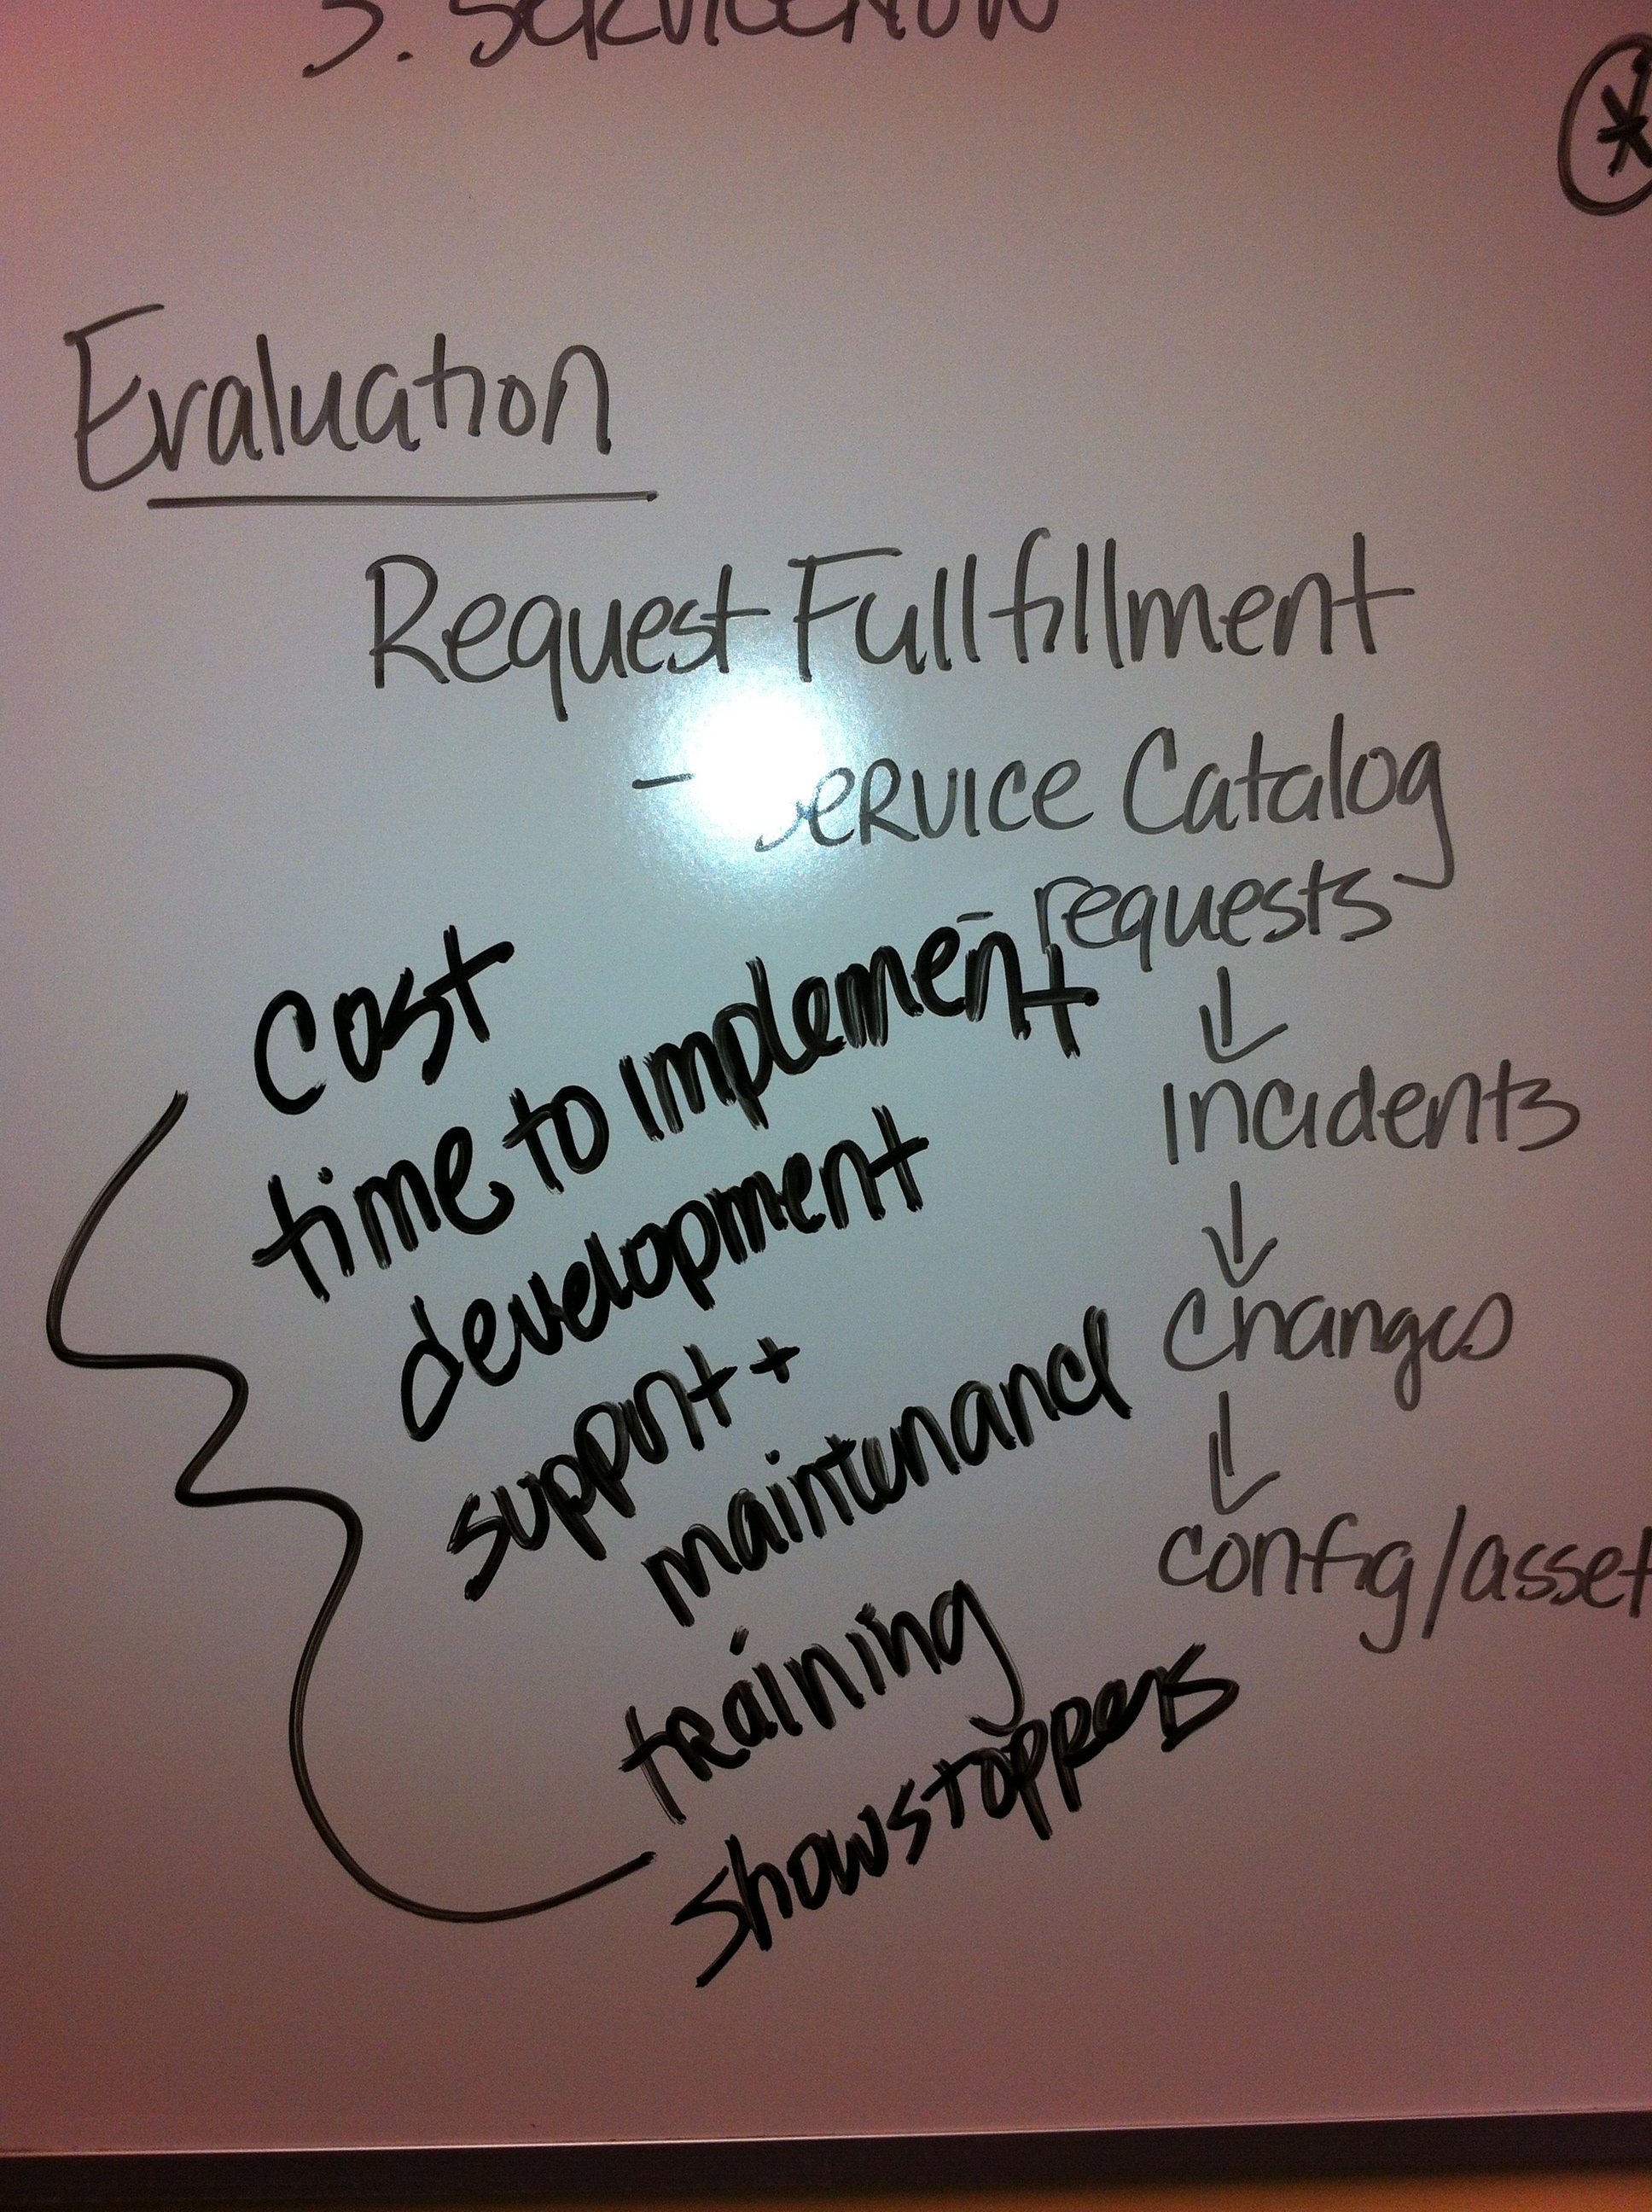 3. ServiceNow
*
Evaluation
Request Fullfillment
- Service Catalog
- requests
↓
incidents
↓
changes
↓
config/asset
Cost
time to implement
development
support +
maintenance
training
showstoppers